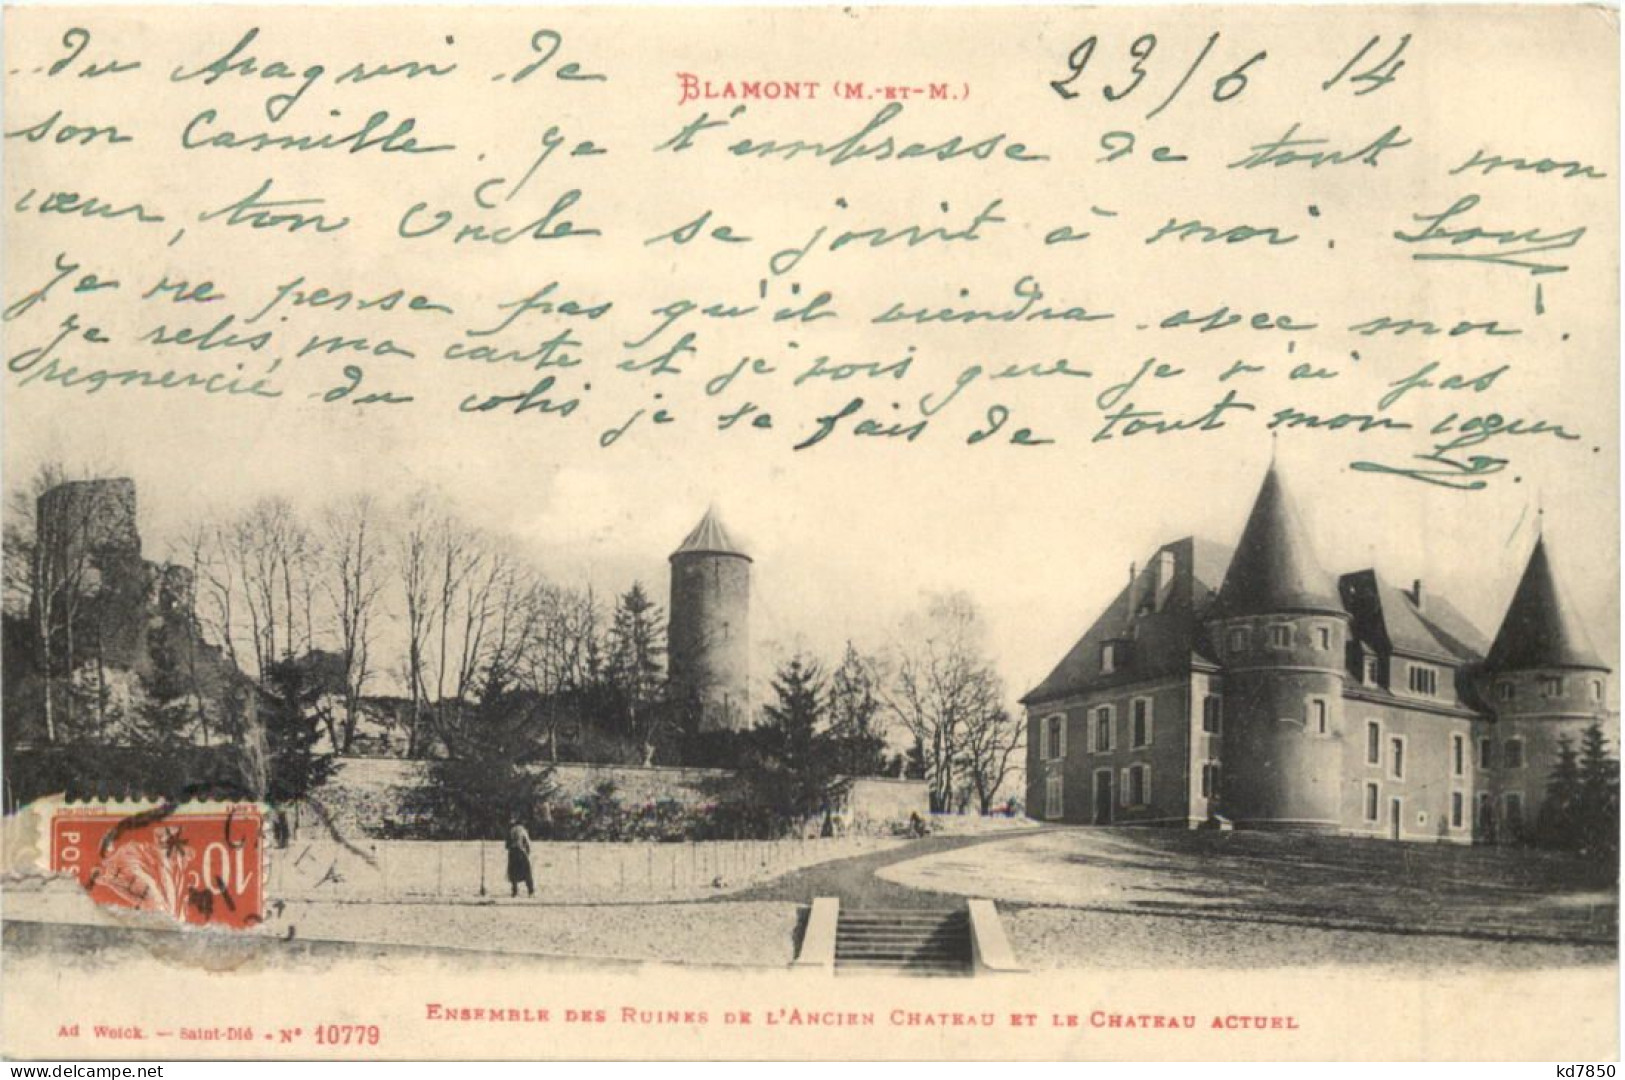 du chagrin de
BLAMONT (M.-ET-M.)
23/6 14
son Camille. Je t'embrasse de tout mon
cœur, ton Oncle se joint à moi.
Je ne pense pas qu'il viendra avec moi.
Je relis ma carte et je vois que je n'ai pas
remercié du colis je le fais de tout mon cœur.
10
POS
ENSEMBLE DES RUINES DE L'ANCIEN CHATEAU ET LE CHATEAU ACTUEL
Ad Weick. — Saint-Dié - N° 10779
kd7850